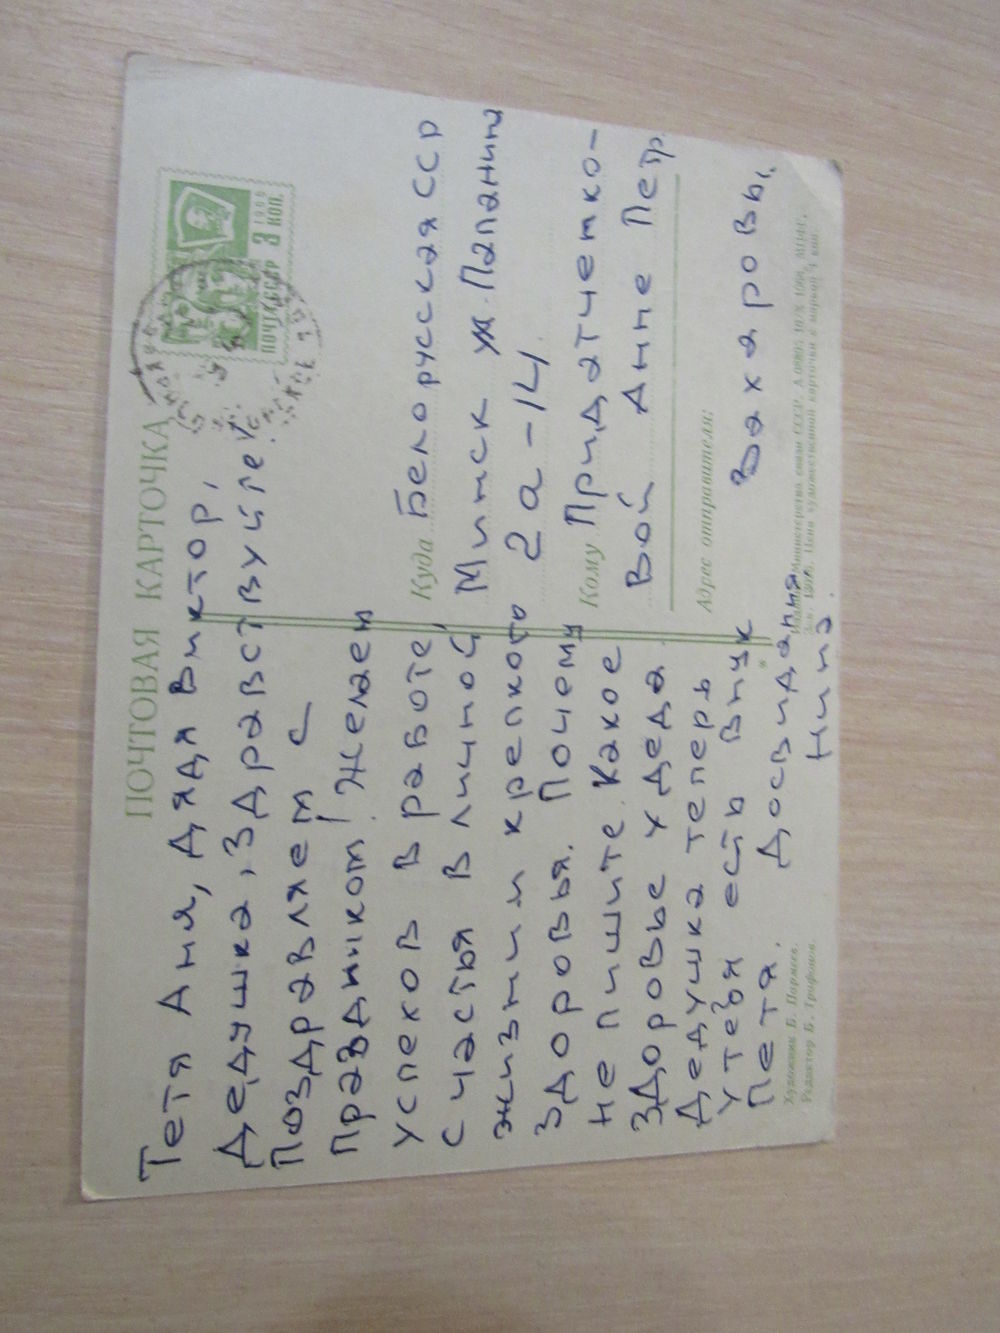 ПОЧТОВАЯ КАРТОЧКА
Тетя Аня, дядя Виктор,
дедушка, здравствуйте!
Поздравляем с
праздником! Желаем
успехов в работе,
счастья в личной
жизни и крепкого
здоровья. Почему
не пишите. Какое
здоровье у деда.
Дедушка теперь
у тебя есть внук
Петя. Досвидания
Нина.
ПОЧТА СССР
1966
3 КОП.
Куда Белорусская ССР
Минск ул. Папанина
2а-14
Кому Придатченко-
вой Анне Петр.
Адрес отправителя:
Захаровы.
Художник Б. Пармеев.
Редактор Б. Трифонов.
Министерства связи СССР.
Цена художественной карточки с маркой 4 коп.